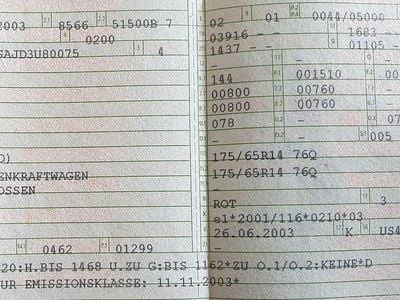 2003 2.1 8566 2.2 51500B 7
4 0200
GAJD3U80075 3 4
D)
ENKRAFTWAGEN
OSSEN
14.1 0462 P.1 01299
02 9 01 P.2 P.4 0044/05000
03916 – – 18 1683 –
1437 – – G 01105 –
– 13 – Q –
144 P.1 001510
00800 00760
00800 00760
078 – U.3 07
– O.2 – S.1 005
175/65R14 76Q
175/65R14 76Q
–
ROT 3
e1*2001/116*0210*03
26.06.2003 K US4
–
20:H.BIS 1468 U.ZU G:BIS 1162*ZU O.1/O.2:KEINE*D
UR EMISSIONSKLASSE: 11.11.2003*